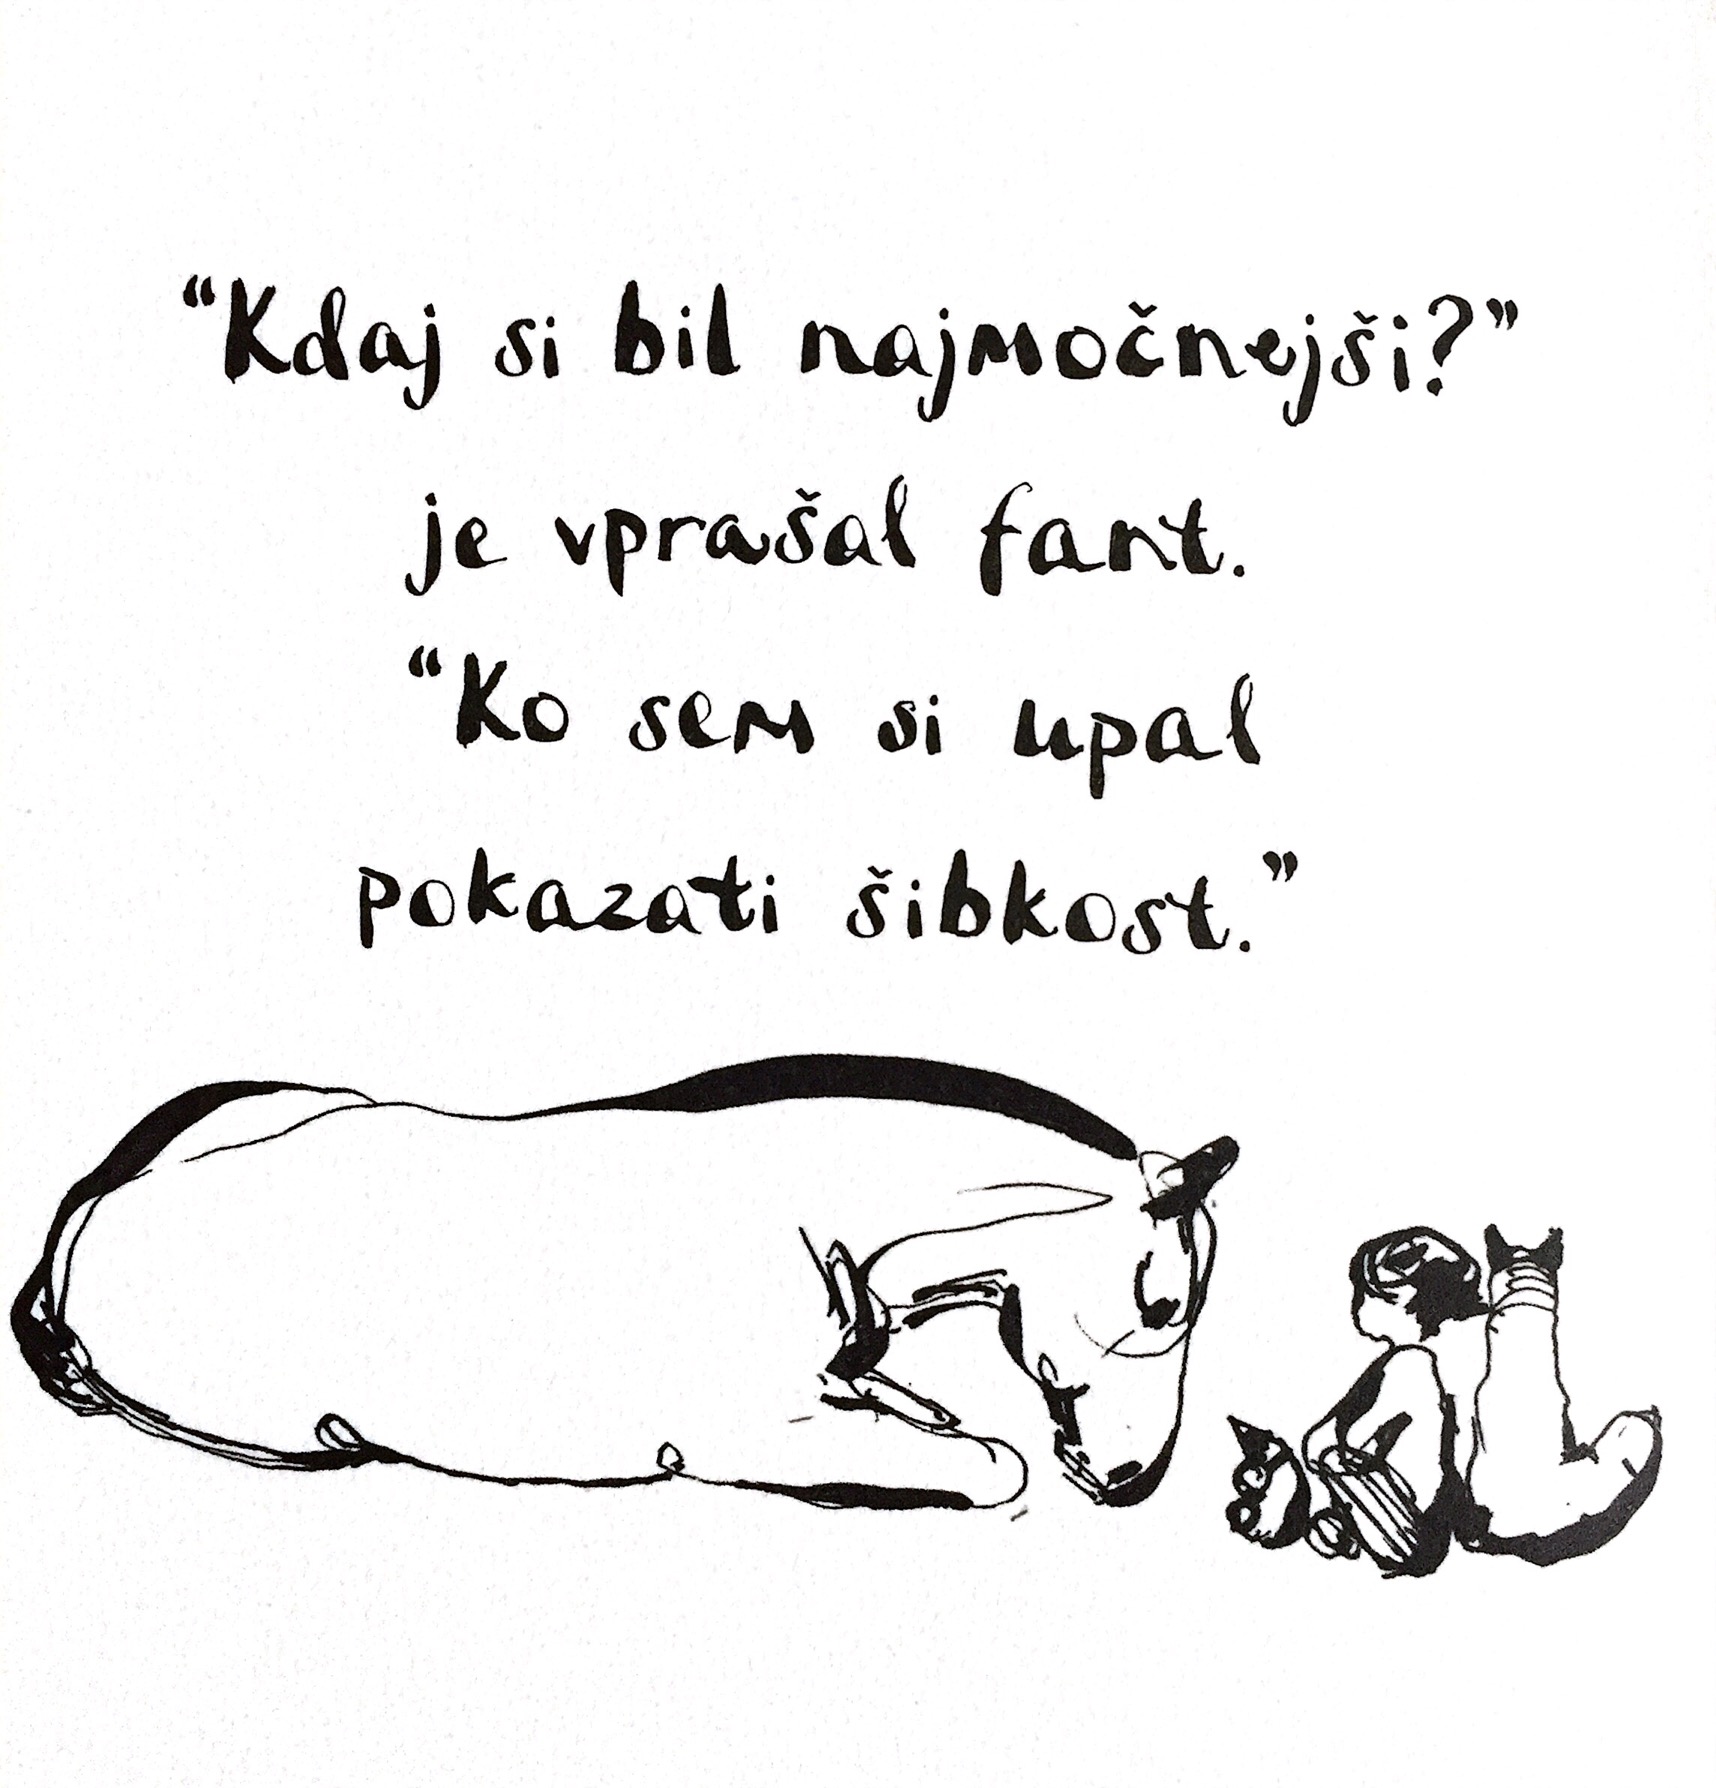 “Kdaj si bil najmočnejši?”
je vprašal fant.
“Ko sem si upal
pokazati šibkost.”